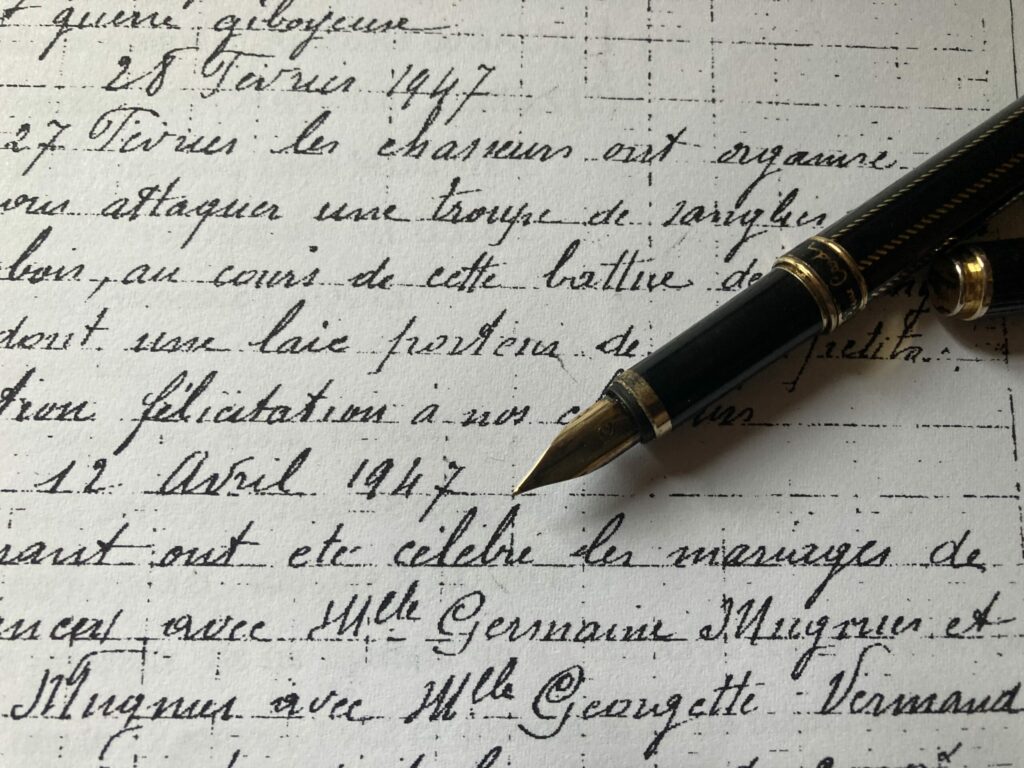 guerre giboyeuse
28 Février 1947
27 Février les chasseurs ont organisé
attaquer une troupe de sanglier
bois, au cours de cette battue de
dont une laie porteur de petits.
félicitation à nos
12 Avril 1947
ont ete célébré les mariages de
avec Mlle Germaine Mugnier et
Mugnier avec Mlle Georgette Vermand